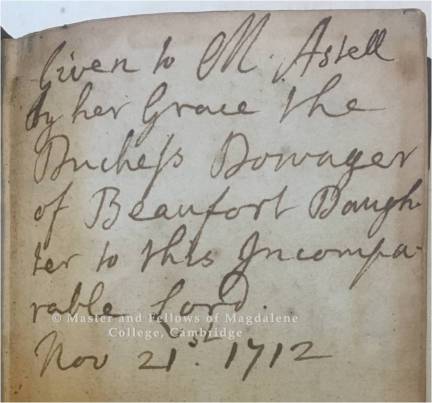 Given to M. Astell
by her Grace the
Duchess Dowager
of Beaufort Daugh-
ter to this Incompa-
rable Lord.
© Master and Fellows of Magdalene
College, Cambridge
Nov 21st. 1712